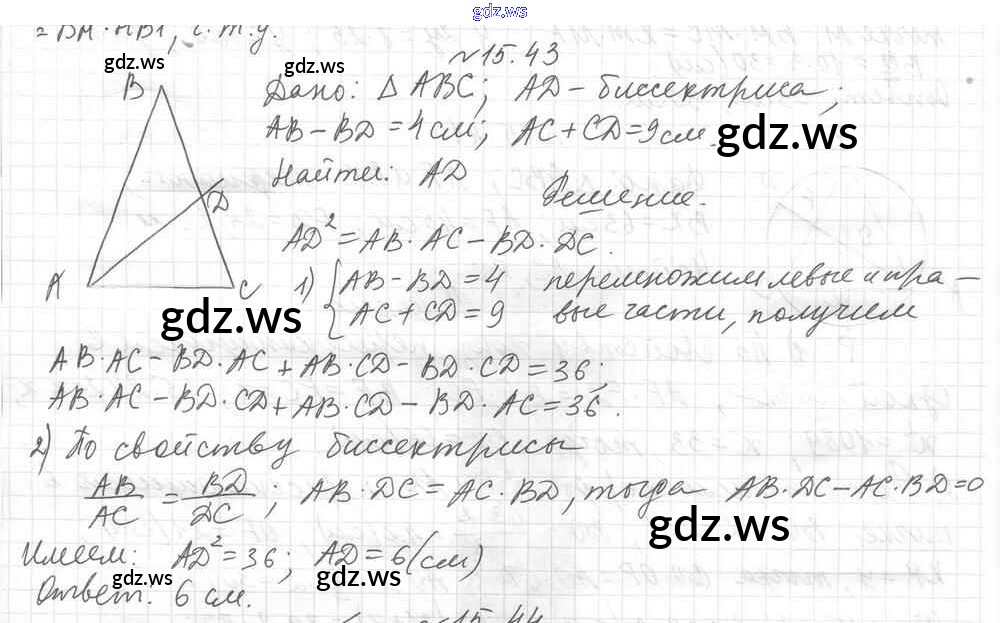 gdz.ws
= BM·MB1, ч.т.д.
gdz.ws
gdz.ws
№15.43
B
Дано: Δ ABC; AD - биссектриса;
AB - BD = 4 см; AC + CD = 9 см.
gdz.ws
Найти: AD
D
Решение.
AD² = AB·AC - BD·DC.
A
C
1) { AB - BD = 4 перемножим левые и пра-
AC + CD = 9 вые части, получим
gdz.ws
AB·AC - BD·AC + AB·CD - BD·CD = 36;
AB·AC - BD·CD + AB·CD - BD·AC = 36.
2) По свойству биссектрисы
AB/AC = BD/DC; AB·DC = AC·BD, тогда AB·DC - AC·BD = 0
gdz.ws
Имеем: AD² = 36; AD = 6 (см)
gdz.ws
gdz.ws
Ответ: 6 см.
gdz.ws
№15.44